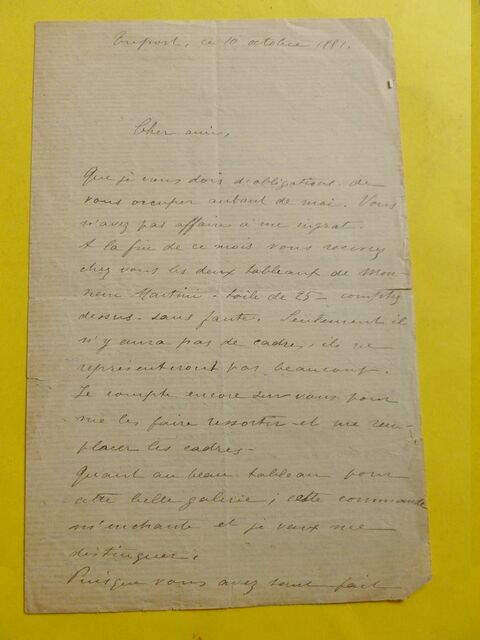 Tréport, ce 10 octobre 1881.
Cher ami,
Que je vous dois d'obligations de
vous occuper autant de moi. Vous
n'avez pas affaire à un ingrat.
A la fin de ce mois vous recevrez
chez vous les deux tableaux de Mon-
sieur Martini - toile de 25 - comptez
dessus - sans faute. Seulement il
n'y aura pas de cadres, ils ne
représenteront pas beaucoup.
Je compte encore sur vous pour
me les faire ressortir et me rem-
placer les cadres -
Quant au beau tableau pour
votre belle galerie ; cette commande
m'enchante et je veux me
distinguer.
Puisque vous avez tant fait